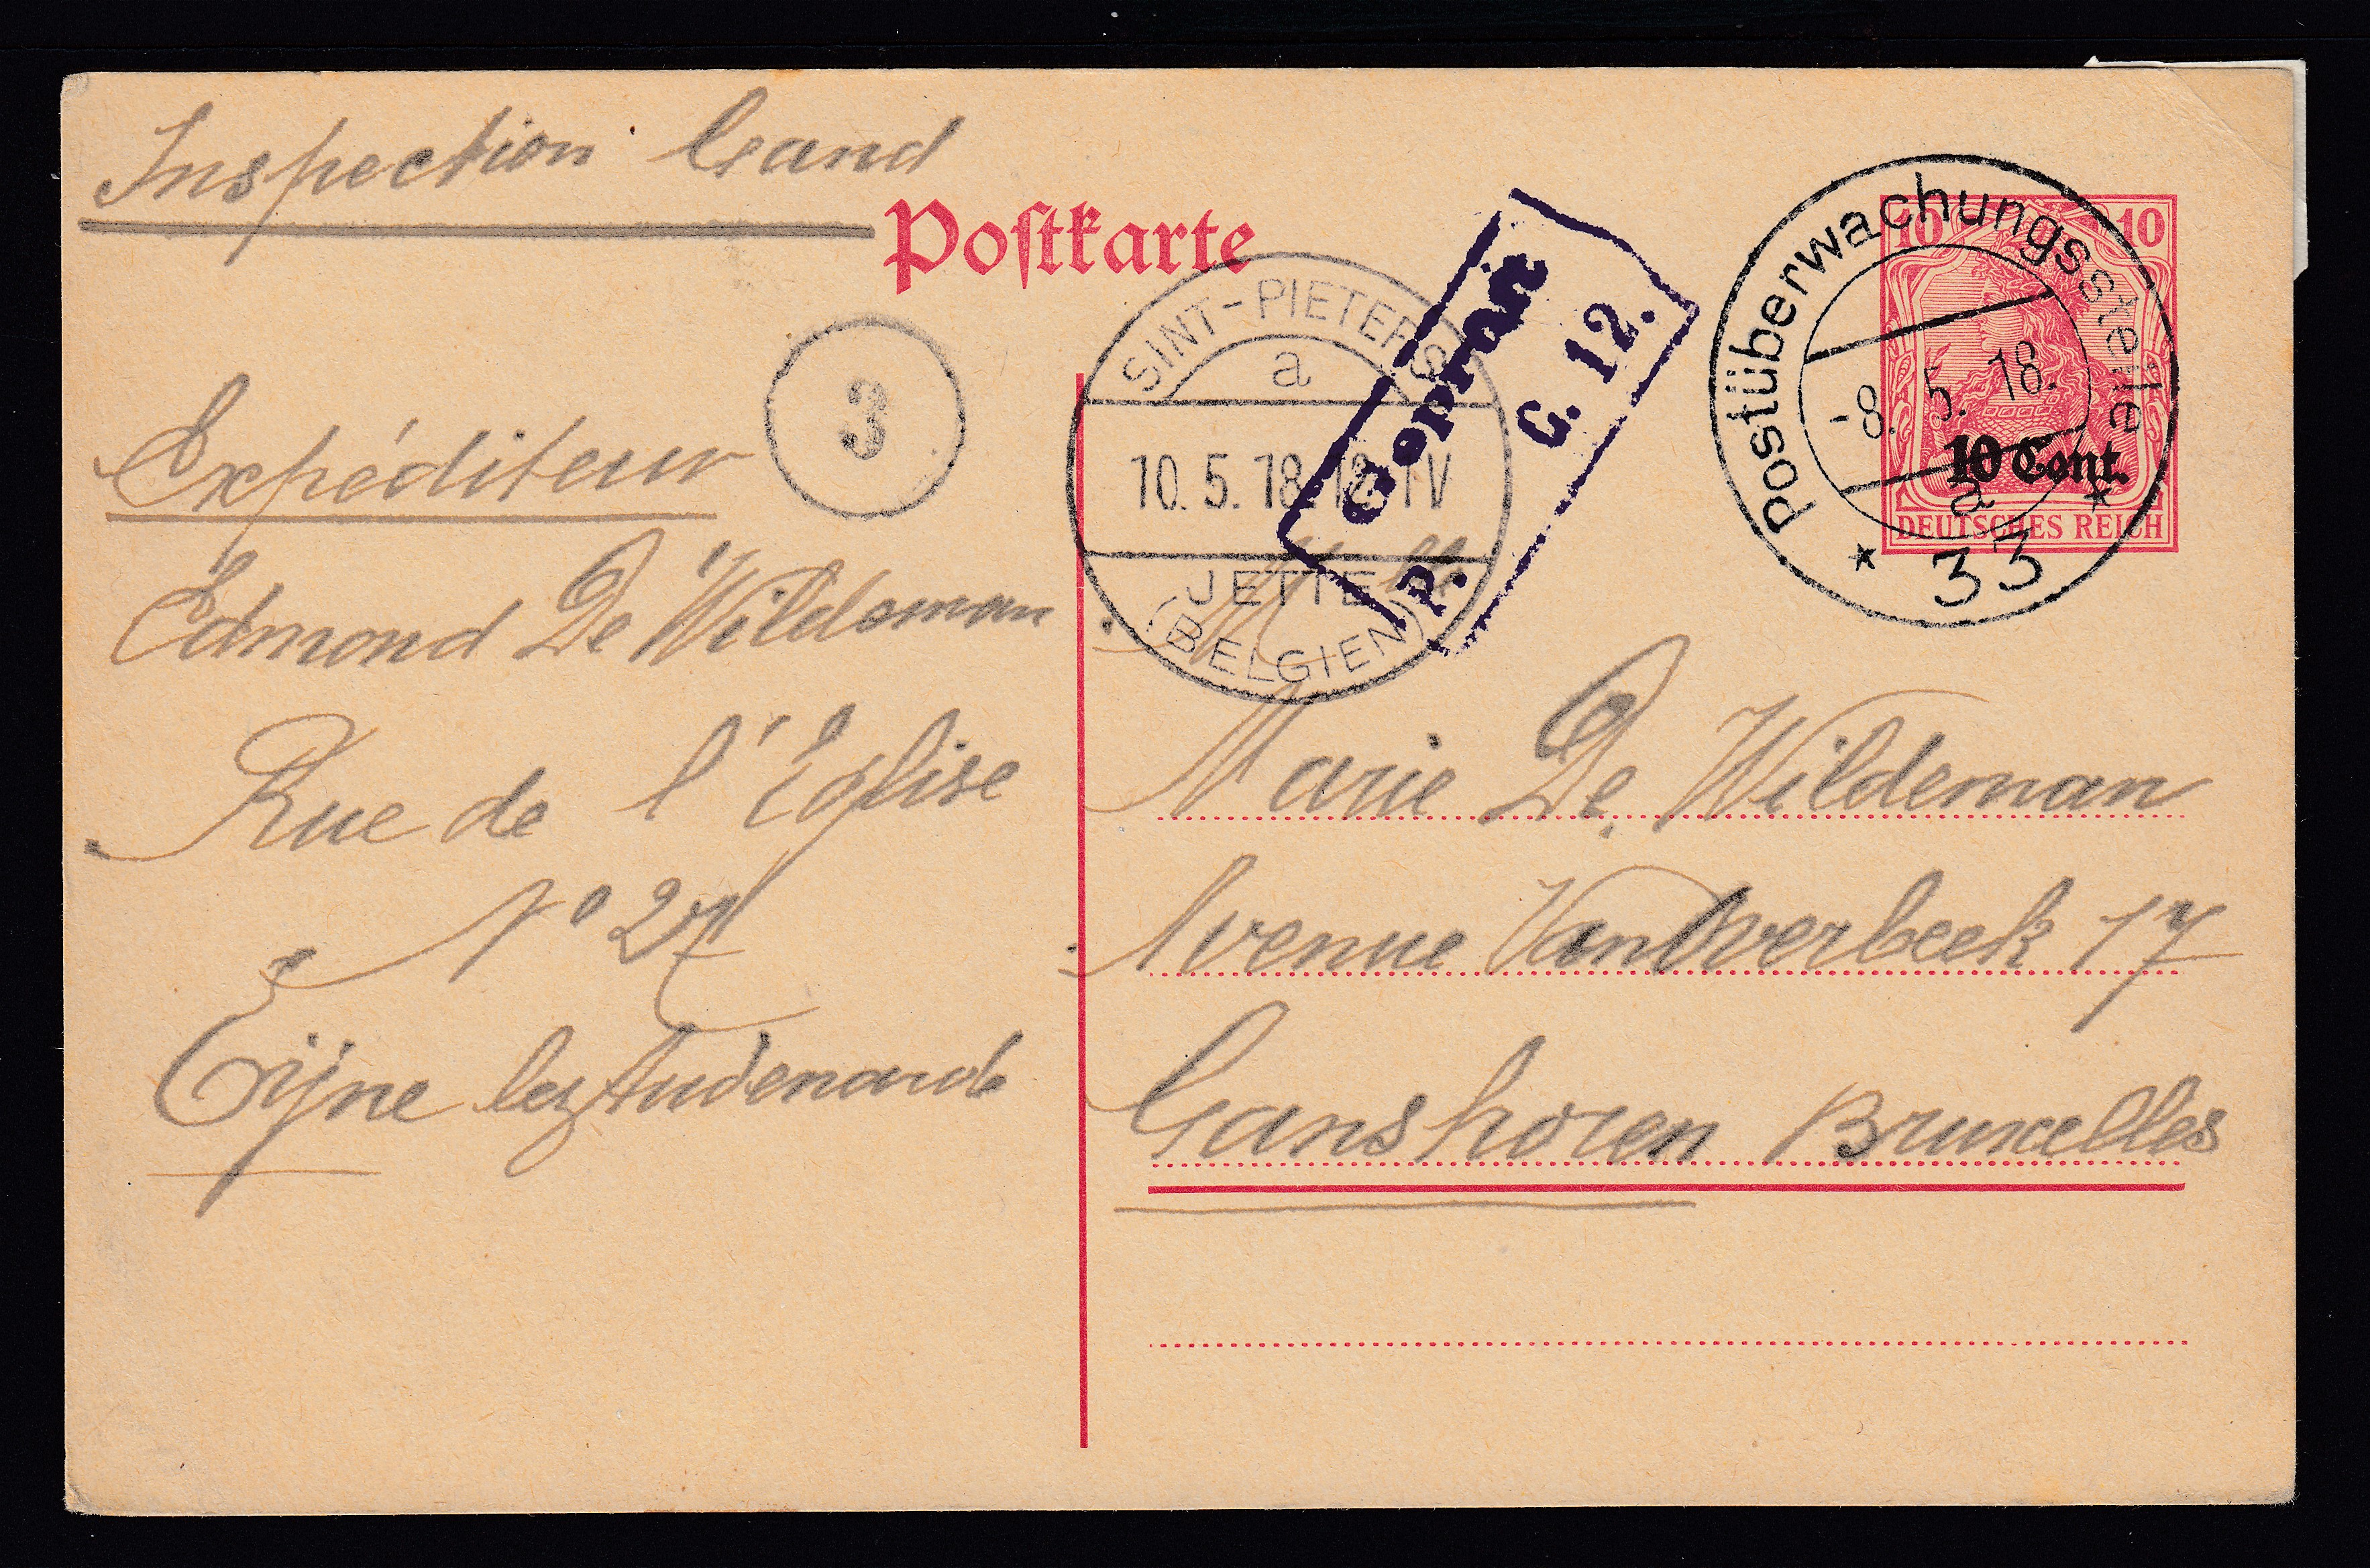 Inspection Gand
Postkarte
Expéditeur
3
Edmond De Wildeman
Rue de l'Église
N° 27
Eijne lez Audenarde
SINT-PIETERS
a
10.5.18. 12-1V
JETTE
(BELGIEN)
Geprüft
P. G. 12.
Postüberwachungsstelle
-8. 5. 18.
a
* 33 *
10 10
10 Cent.
DEUTSCHES REICH
Marie De Wildeman
Avenue Van Overbeek 17
Ganshoren Bruxelles